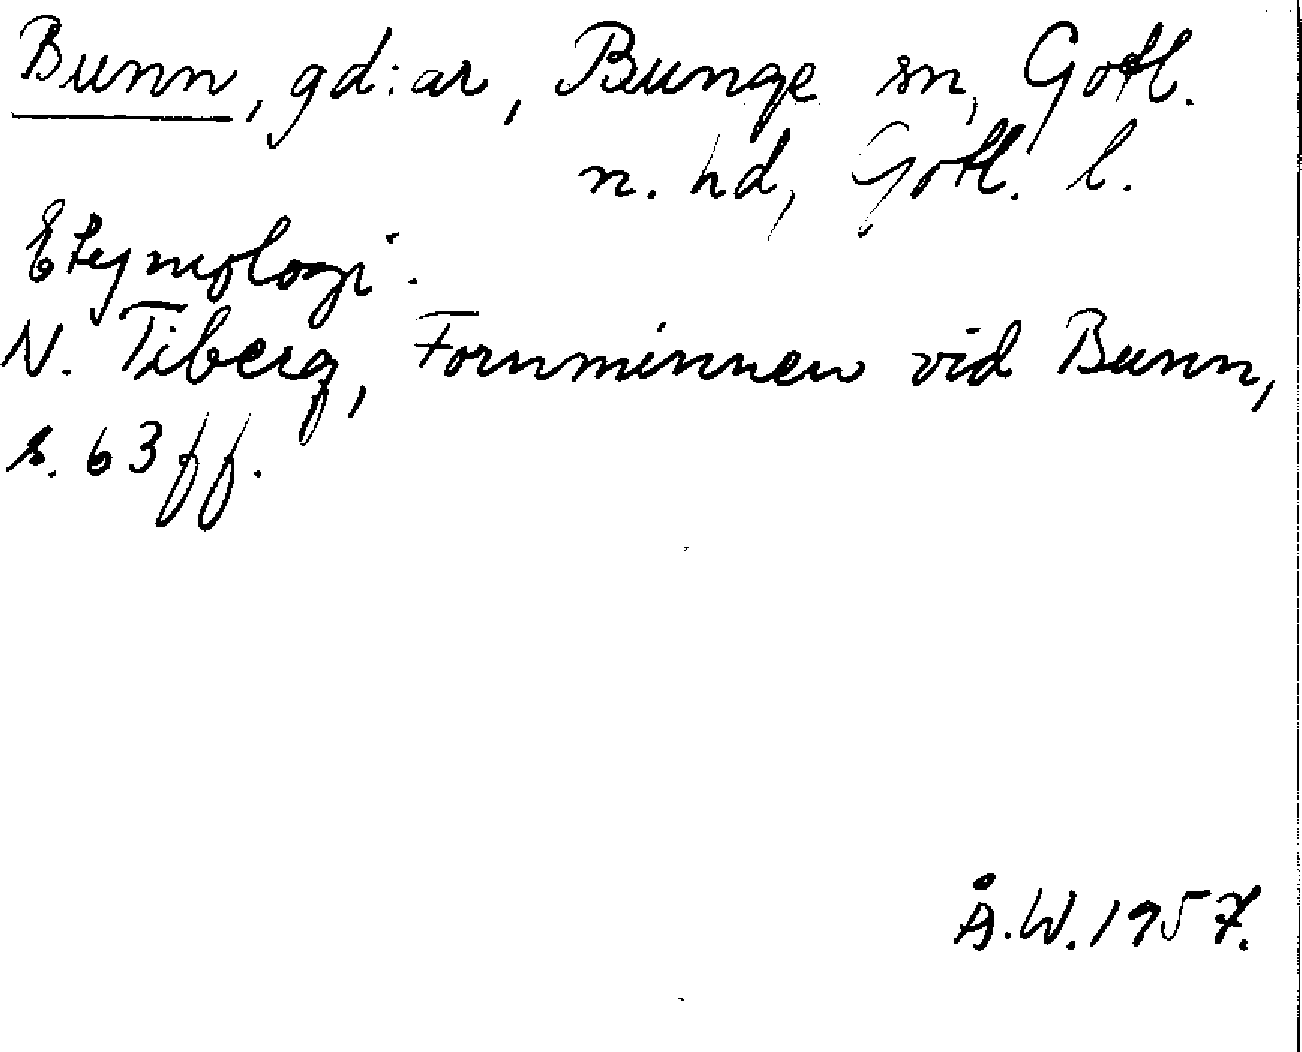 Bunn, gd:ar, Bunge sn, Gotl.
n. hd, Gotl. l.
Etymologi.
N. Tiberg, Fornminnen vid Bunn,
s. 63 ff.
Å.W. 1957.